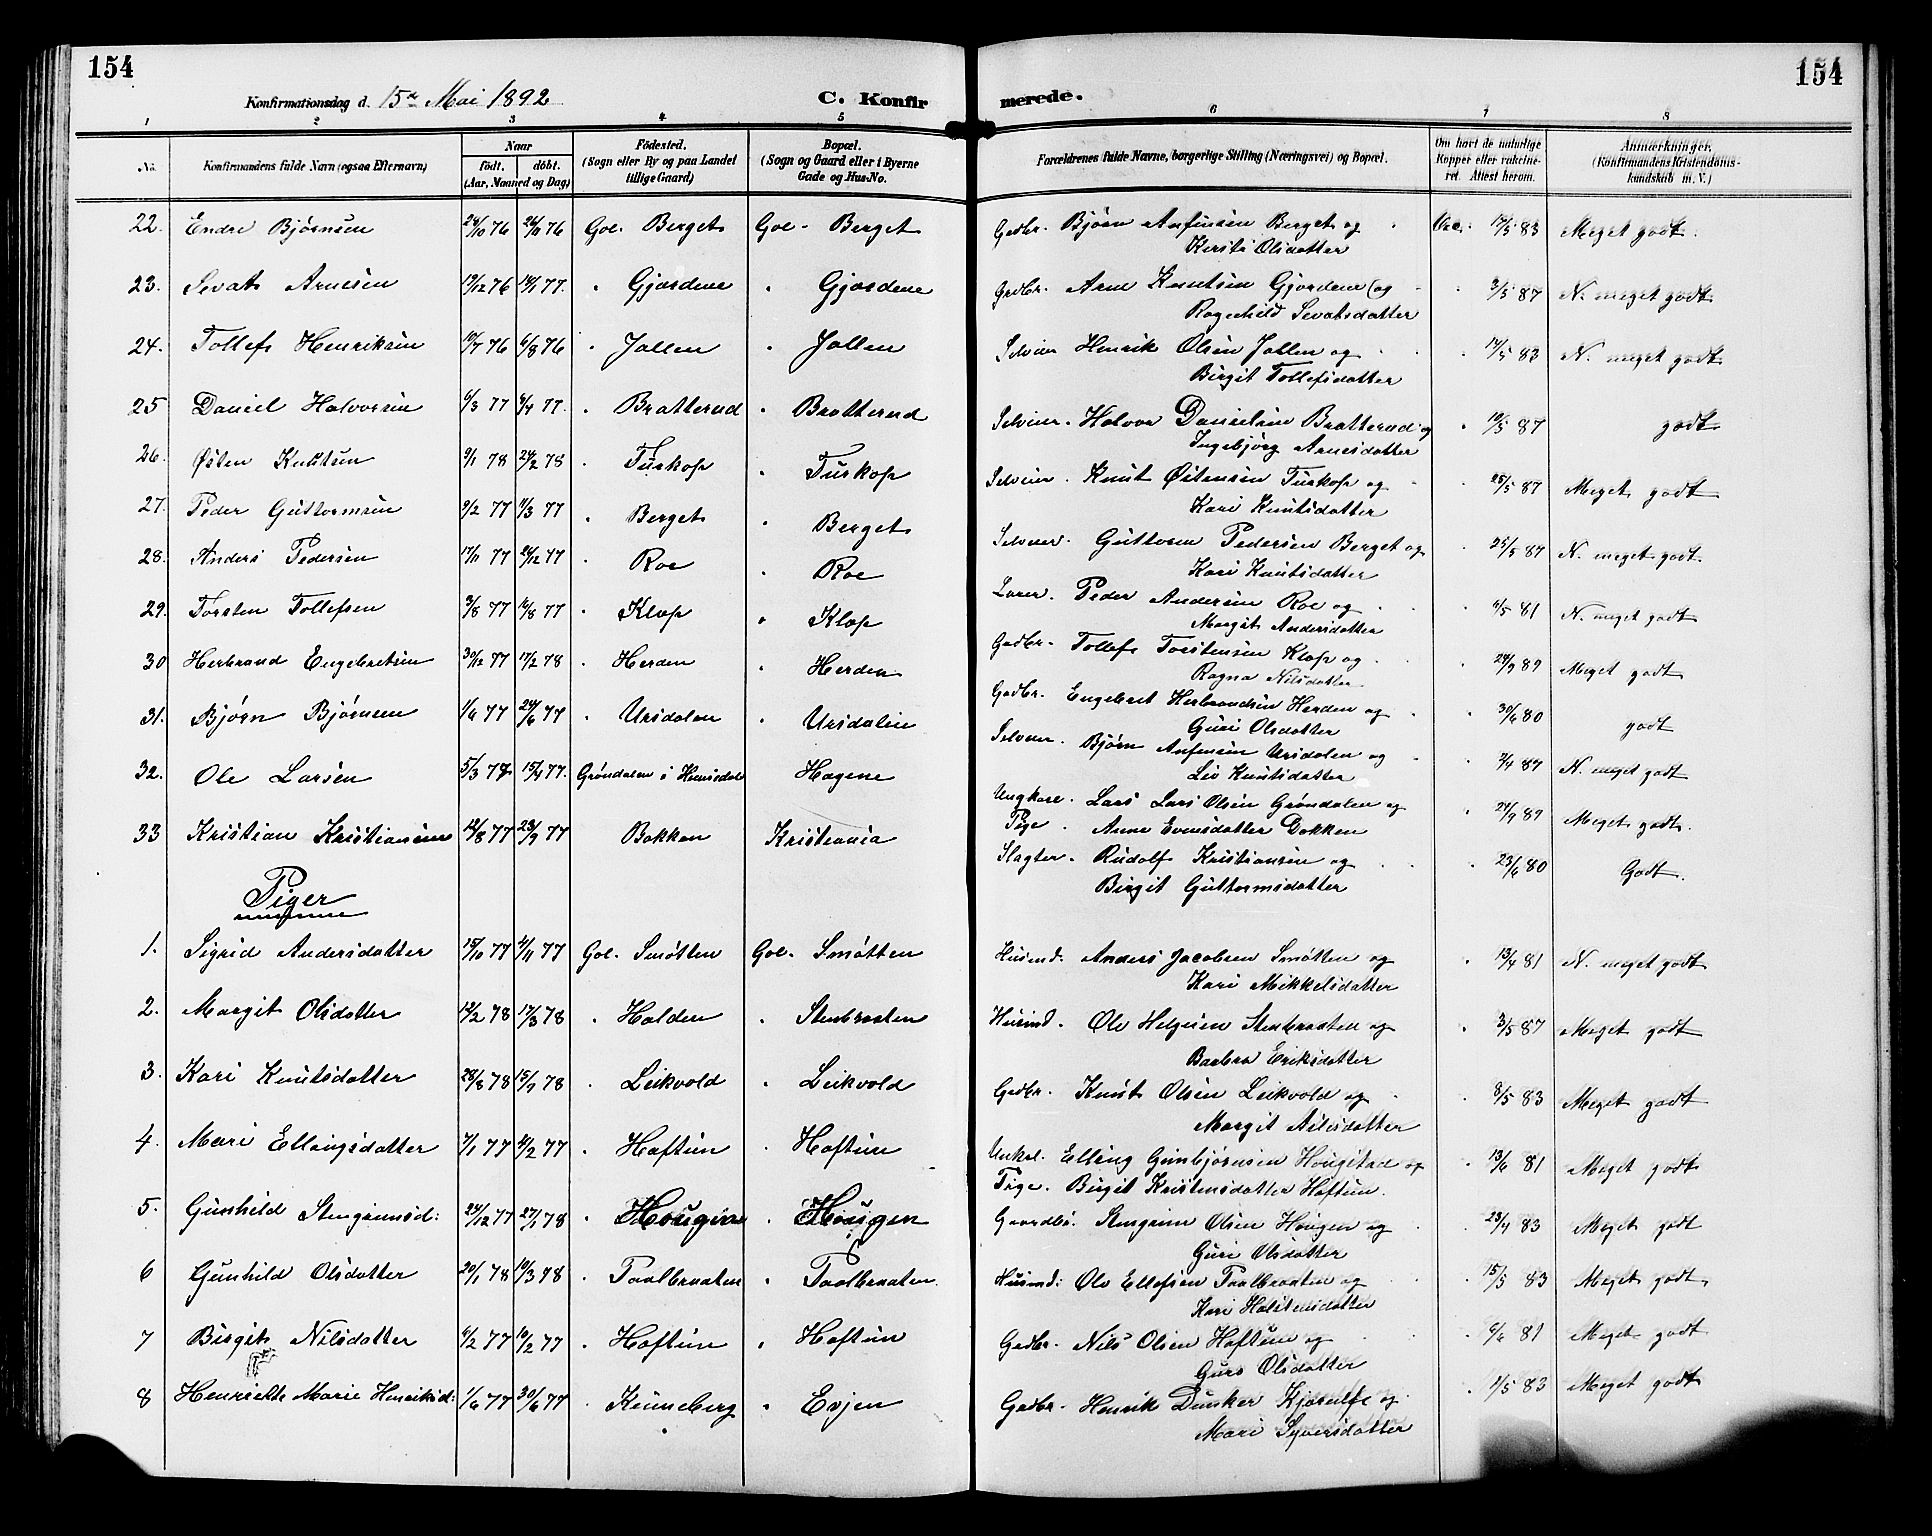 154
154
Konfirmationsdag d. 15de Mai 1892
C. Konfir
merede.
1 2 3 4 5 6 7 8
No.
Konfirmandens fulde Navn (ogsaa Efternavn)
Naar
født. døbt.
(Aar, Maaned og Dag)
Fødested.
(Sogn eller By og paa Landet
tillige Gaard)
Bopæl.
(Sogn og Gaard eller i Byerne
Gade og Hus-No.
Forældrenes fulde Navne, borgerlige Stilling (Næringsvei) og Bopæl.
Om havt de naturlige
Kopper eller vakcine-
ret. Attest herom.
Anmærkninger.
(Konfirmandens Kristendoms-
kundskab m. V.)
22. Endre Bjørnsen 24/10 76 26/11 76 Gol. Berget Gol - Berget Grdbr. Bjørn Anfinsen Berget og Vac. 14/5 83 Meget godt.
Kersti Olsdatter
23. Sevat Arnesen 19/12 76 14/1 77. " Gjordene " Gjordene Grdbr. Arne Knutsen Gjordene og " 3/5 87 N. meget godt
Ragnhild Sevatsdatter
24. Tollef Henriksen 10/7 76 6/8 76 " Jallen " Jallen Selveier Henrik Olsen Jallen og " 14/5 83 N. meget godt
Birgit Tollefsdatter
25 Daniel Halvorsen 6/3 77 2/4 77. " Bratterud " Bratterud Selveier. Halvor Danielsen Bratterud og " 10/5 87 godt
Ingebjørg Arnesdatter
26. Østen Knutsen 9/1 78 24/2 78 " Tuskop " Tuskop Selveier. Knut Østensen Tuskop og " 25/5 87 Meget godt
Kari Knutsdatter
27. Peder Guttormsen 9/2 77 11/3 77 " Berget " Berget Selveier. Guttorm Pedersen Berget og " 25/5 87 N. meget godt.
Kari Knutsdatter
28. Anders Pedersen 17/11 77 26/12 77 " Roe " Roe Lærer. Peder Andersen Roe og " 11/5 81 N. meget godt
Margit Andersdatter
29. Torsten Tollefsen 3/8 77 12/8 77 " Klop " Klop Grdbr. Tollef Torstensen Klop og " 24/9 89 Meget godt
Ragna Nilsdatter
30 Herbrand Engebretsen 30/12 77 17/2 78 " Herden " Herden Grdbr. Engebret Herbrandsen Herden og " 30/6 80 godt
Guri Olsdatter
31. Bjørn Bjørnsen 1/6 77 24/6 77 " Ursdalen " Ursdalen Selveier. Bjørn Anfinsen Ursdalen og " 7/4 87 N. meget godt
Liv Knutsdatter
32. Ole Larsen 5/3 77 15/4 77. Grøndalen i Hemsedal Hagene Ungkarl. Lars Lars Olsen Grøndalen og " 24/9 89 Meget godt.
Pige. Anne Evensdatter Dokken
33 Kristian Kristiansen 12/8 77 23/9 77 Bakken Kristiania Slagter. Rudolf Kristiansen og " 23/6 80 Godt.
Birgit Guttormsdatter
Piger
1. Sigrid Andersdatter 15/10 77 4/11 77 Gol. Smøtten Gol. Smøtten Husmd. Anders Jacobsen Smøtten og " 13/4 81 N. meget godt
Kari Mikkelsdatter
2. Margit Olsdatter 12/2 78 17/3 78 " Halden " Stenbraaten Husmd. Ole Helgesen Stenbraaten og " 3/5 87 Meget godt
Barbra Eriksdatter
3. Kari Knutsdatter 28/8 78 15/9 78 " Leikvold " Leikvold Grdbr. Knut Olsen Leikvold og " 8/5 83 Meget godt
Margit Nilsdatter
4. Mari Ellingsdatter 7/1 77 4/2 77 " Haftun " Haftun Unkrl. Elling Gunbjørnsen Hougstad og " 13/6 81 Meget godt
Pige. Birgit Kristensdatter Haftun.
5. Gunhild Stengrimsd: 24/12 77 27/1 78 " Hougen " Hougen Gaardbr. Stengrim Olsen Hougen og " 23/4 83 Meget godt
Guri Olsdatter
6 Gunhild Olsdatter 20/1 78 10/3 78 " Paalbraaten " Paalbraaten. Husmd: Ole Ellefsen Paalbraaten og " 15/5 83 Meget godt
Kari Halstensdatter
7 Birgit Nilsdatter 6/2 77 18/2 77 " Haftun " Haftun Grdbr. Nils Olsen Haftun og " 6/6 81 Meget godt
Guro Olsdatter
8 Henriette Marie Henriksd: 1/6 77 30/6 77 " Kinneberg " Evjen Grdbr. Henrik Dunker Kjærulf og " 1/5 83 Meget godt
Mari Syversdatter